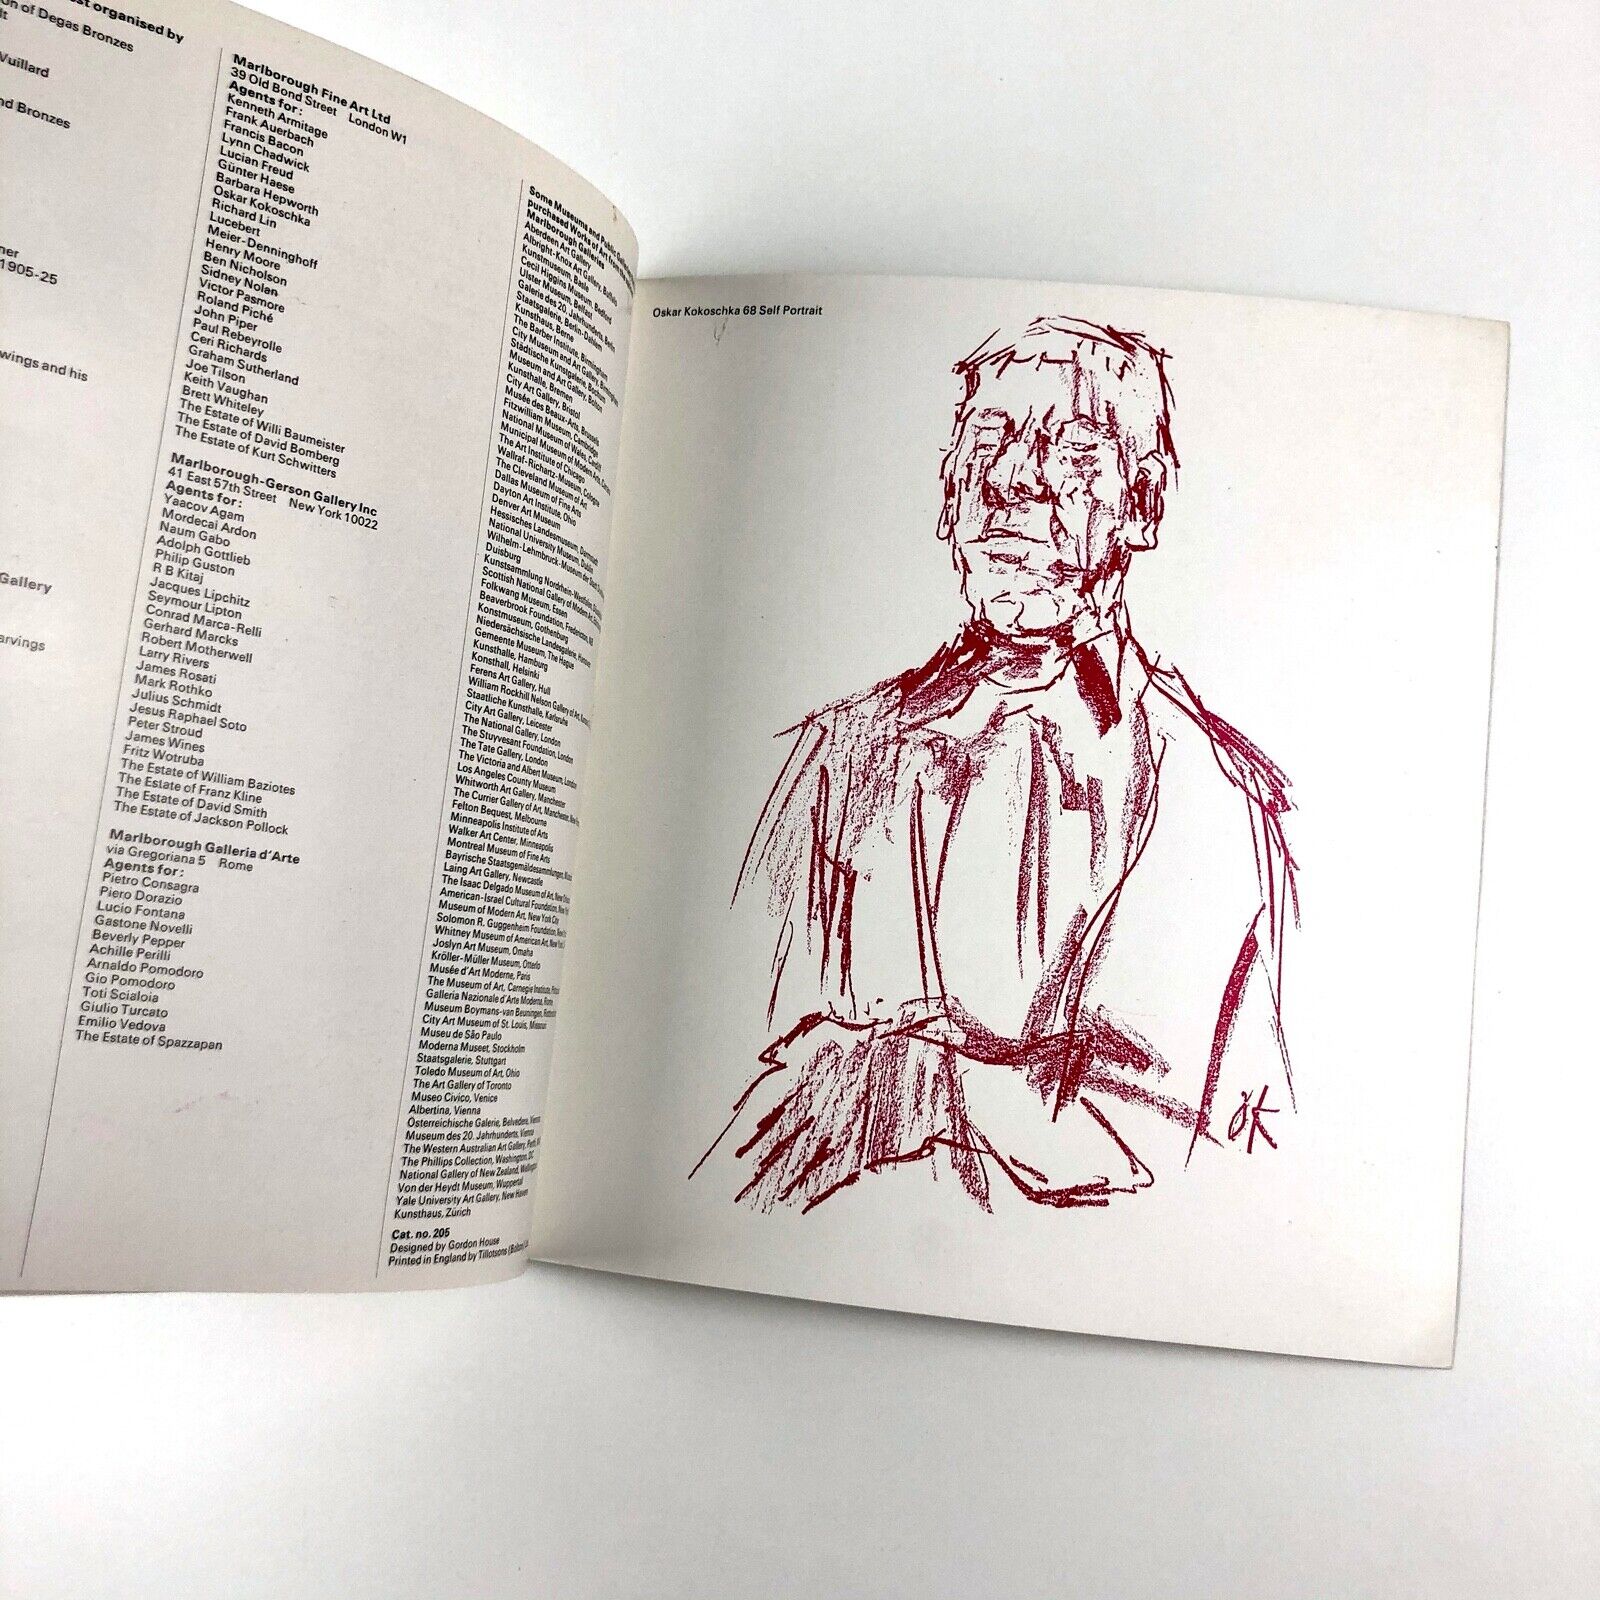 st organised by
on of Degas Bronzes
dt
Vuillard
nd Bronzes
ner
1905-25
wings and his
Gallery
arvings
Marlborough Fine Art Ltd
39 Old Bond Street London W1
Agents for:
Kenneth Armitage
Frank Auerbach
Francis Bacon
Lynn Chadwick
Lucian Freud
Günter Haese
Barbara Hepworth
Oskar Kokoschka
Richard Lin
Lucebert
Meier-Denninghoff
Henry Moore
Ben Nicholson
Sidney Nolan
Victor Pasmore
Roland Piché
John Piper
Paul Rebeyrolle
Ceri Richards
Graham Sutherland
Joe Tilson
Keith Vaughan
Brett Whiteley
The Estate of Willi Baumeister
The Estate of David Bomberg
The Estate of Kurt Schwitters
Marlborough-Gerson Gallery Inc
41 East 57th Street New York 10022
Agents for:
Yaacov Agam
Mordecai Ardon
Naum Gabo
Adolph Gottlieb
Philip Guston
R B Kitaj
Jacques Lipchitz
Seymour Lipton
Conrad Marca-Relli
Gerhard Marcks
Robert Motherwell
Larry Rivers
James Rosati
Mark Rothko
Julius Schmidt
Jesus Raphael Soto
Peter Stroud
James Wines
Fritz Wotruba
The Estate of William Baziotes
The Estate of Franz Kline
The Estate of David Smith
The Estate of Jackson Pollock
Marlborough Galleria d'Arte
via Gregoriana 5 Rome
Agents for:
Pietro Consagra
Piero Dorazio
Lucio Fontana
Gastone Novelli
Beverly Pepper
Achille Perilli
Arnaldo Pomodoro
Gio Pomodoro
Toti Scialoia
Giulio Turcato
Emilio Vedova
The Estate of Spazzapan
Some Museums and Public
purchased Works of Art from the
Marlborough Galleries
Aberdeen Art Gallery
Albright-Knox Art Gallery, Buffalo
Kunstmuseum, Basle
Cecil Higgins Museum, Bedford
Ulster Museum, Belfast
Galerie des 20. Jahrhunderts, Berlin
Staatsgalerie, Berlin-Dahlem
Kunsthaus, Berne
The Barber Institute, Birmingham
City Museum and Art Gallery, Birmingham
Städtische Kunstgalerie, Bochum
Museum and Art Gallery, Bolton
Kunsthalle, Bremen
City Art Gallery, Bristol
Musée des Beaux-Arts, Brussels
Fitzwilliam Museum, Cambridge
National Museum of Wales, Cardiff
Municipal Museum of Modern Arts,
The Art Institute of Chicago
Wallraf-Richartz Museum, Cologne
The Cleveland Museum of Art
Dallas Museum of Fine Arts
Dayton Art Institute, Ohio
Denver Art Museum
Hessisches Landesmuseum, Darmstadt
National University Museum, Dublin
Wilhelm-Lehmbruck-Museum der Stadt
Duisburg
Kunstsammlung Nordrhein-Westfalen,
Scottish National Gallery of Modern Art,
Folkwang Museum, Essen
Beaverbrook Foundation, Fredericton, NB
Konstmuseum, Gothenburg
Niedersächsische Landesgalerie,
Gemeente Museum, The Hague
Kunsthalle, Hamburg
Konsthall, Helsinki
Ferens Art Gallery, Hull
William Rockhill Nelson Gallery of Art,
Staatliche Kunsthalle, Karlsruhe
City Art Gallery, Leicester
The National Gallery, London
The Stuyvesant Foundation, London
The Tate Gallery, London
The Victoria and Albert Museum, London
Los Angeles County Museum
Whitworth Art Gallery, Manchester
The Currier Gallery of Art, Manchester,
Felton Bequest, Melbourne
Minneapolis Institute of Arts
Walker Art Center, Minneapolis
Montreal Museum of Fine Arts
Bayrische Staatsgemäldesammlungen,
Laing Art Gallery, Newcastle
The Isaac Delgado Museum of Art, New
American-Israel Cultural Foundation, New
Museum of Modern Art, New York City
Solomon R. Guggenheim Foundation, New
Whitney Museum of American Art, New
Joslyn Art Museum, Omaha
Kröller-Müller Museum, Otterlo
Musée d'Art Moderne, Paris
The Museum of Art, Carnegie Institute,
Galleria Nazionale d'Arte Moderna, Rome
Museum Boymans-van Beuningen,
City Art Museum of St. Louis,
Museu de São Paulo
Moderna Museet, Stockholm
Staatsgalerie, Stuttgart
Toledo Museum of Art, Ohio
The Art Gallery of Toronto
Museo Civico, Venice
Albertina, Vienna
Österreichische Galerie, Belvedere, Vienna
Museum des 20. Jahrhunderts, Vienna
The Western Australian Art Gallery, Perth,
The Phillips Collection, Washington, DC
National Gallery of New Zealand, Wellington
Von der Heydt Museum, Wuppertal
Yale University Art Gallery, New Haven
Kunsthaus, Zürich
Cat. no. 205
Designed by Gordon House
Printed in England by Tillotsons (Bolton)
Oskar Kokoschka 68 Self Portrait
OK